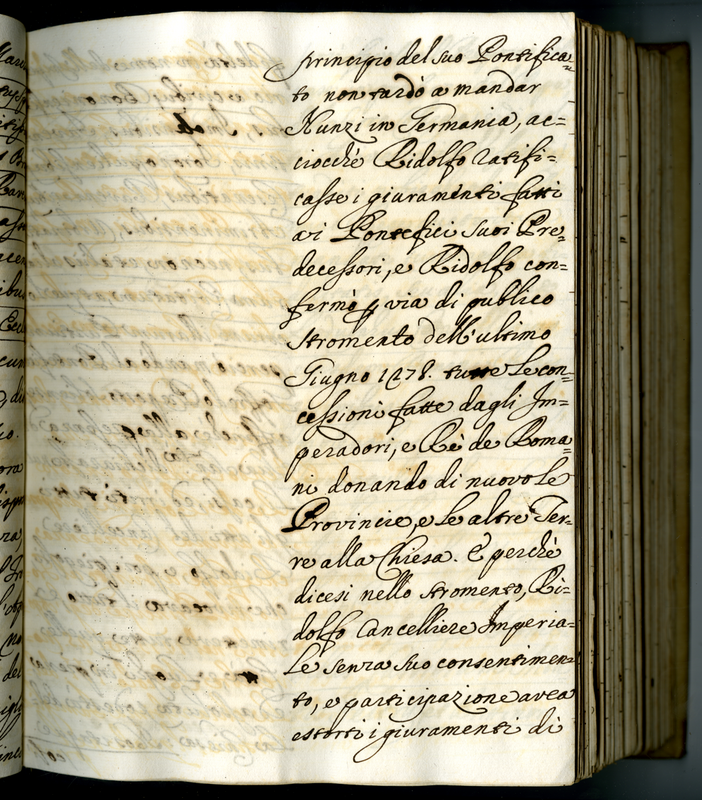 principio del suo Pontifica=
to non tardò a mandar
Nunzi in Germania, ac=
ciocchè Ridolfo ratifi=
casse i giuramenti fatti
ai Pontefici suoi Pre=
decessori, e Ridolfo con=
fermò p via di publico
stromento dell'ultimo
Giugno 1278. tutte le con=
cessioni fatte dagli Im=
peradori, e Rè de Roma=
ni donando di nuovo le
Provincie, e le altre Ter=
re alla Chiesa. E perchè
dicesi nello stromento, Ri=
dolfo Cancelliere Imperia=
le senza suo consentimen=
to, e participazione avea
estorti i giuramenti di